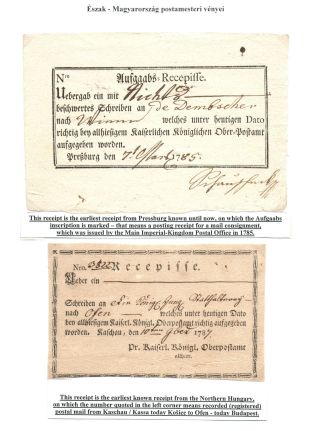 Észak - Magyarország postamesteri vényei
Nro Aufgaabs-Recepisse.
Uebergab ein mit Nichts
beschwertes Schreiben an de Dembscher
nach Wienn welches unter heutigen Dato
richtig bey allhiesigem Kaiserlichen Königlichen Ober-Postamt
aufgegeben worden.
Preßburg den 7t Mart 1785.
This receipt is the earliest receipt from Pressburg known until now, on which the Aufgaabs
inscription is marked – that means a posting receipt for a mail consignment,
which was issued by the Main Imperial-Kingdom Postal Office in 1785.
Nro. Recepisse.
Ueber ein
Schreiben an Königl.
nach Ofen welches unter heutigen Dato
bey allhiesigem Kaiserl. Königl. Oberpostamt richtig aufgegeben
worden. Kaschau, den 10ten 1787
Pr. Kaiserl. Königl. Oberpostamt
allhier.
This receipt is the earliest known receipt from the Northern Hungary,
on which the number quoted in the left corner means recorded (registered)
postal mail from Kaschau / Kassa today Košice to Ofen - today Budapest.